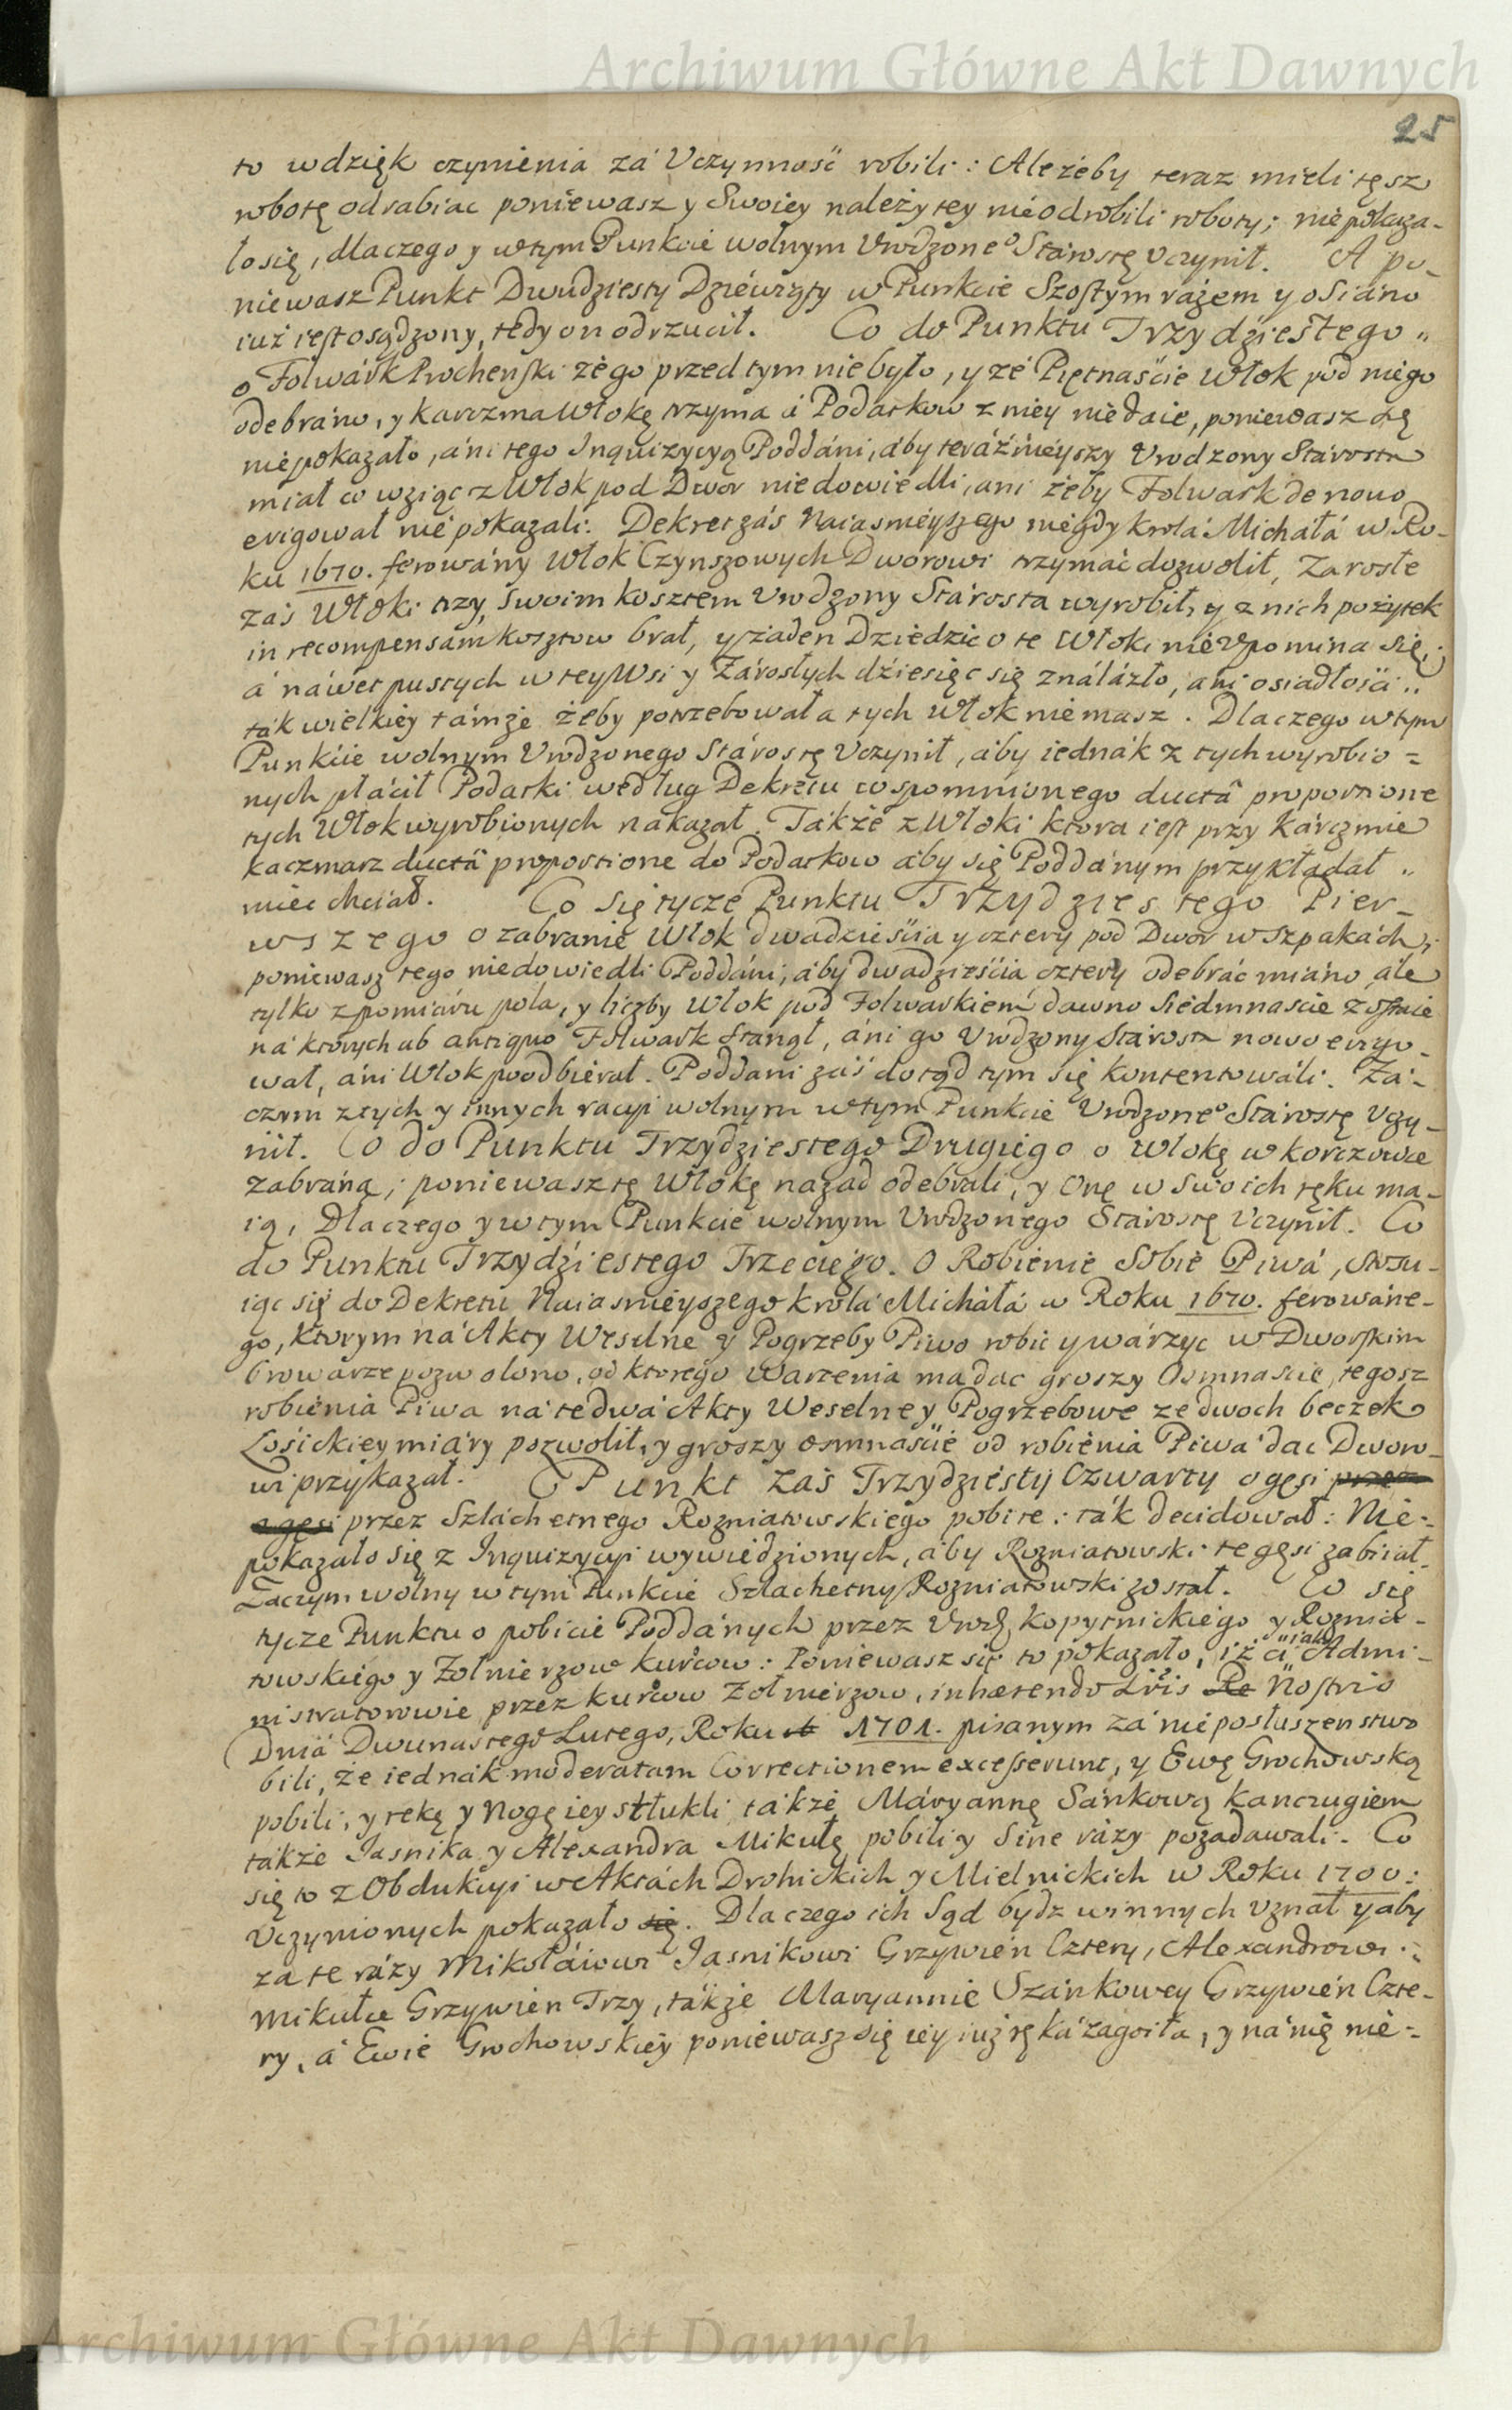 Archiwum Główne Akt Dawnych
25
to wdzięk czynienia zá Uczynność robili: Ale żeby teraz mieli tęsz
robotę odrabiac poniewasz y Swoiey należytey nieodrobili roboty; niepokaza-
ło się, dlaczego y wtym Punkcie wolnym Urodzone° Stárostę Uczynił. A po-
niewasz Punkt Dwudziesty Dziéwiąty w Punkcie Szostym rázem y o Siáno
iuż iest osądzony, tedy on odrzucił. Co do Punktu Trzydziestego „
o Folwárk Prochenski żego przed tym nie było, y że Piętnaście Włok pod niego
odebráno, y karczma Włokę trzyma á Podatkow z niey niedaie, poniewasz się
niepokazało, áni tego Inquizycyą Poddáni, áby teráźnieyszy Urodzony Stárosta
miał co wziąc z Włok pod Dwor niedowiedli, ani żeby Folwark de novo
erigował nie pokazali. Dekret zás Naiasnieyszego niegdy krolá Micháłá w Ro-
ku 1670. ferowány Włok Czynszowych Dworowi trzymáć dozwolił, Zarosłe
zás Włoki trzy, swoim kosztem Urodzony Stárosta wyrobił, y z nich pożytek
in recompensam kosztow brał, y żaden Dziedzic o te Włoki nie Upomina się,
á náwet pustych w tey Wsi y Zárosłych dźiesięc się ználázło, ani osiadłości „
ták wielkiey támże żeby potrzebowała tych Włok niemasz. Dlaczego wtym
Punkćie wolnym Urodzonego Stárostę Uczynił, áby iednák z tych wyrobio=
nych płácił Podatki według Dekretu wspomnionego ductâ proportione
tych Włok wyrobionych nakazał. Tákże z Włoki ktora iest przy Kárczmie
kaczmarz ductâ proportione do Podatkow áby się Poddánym przykładał „
miec chciał. Co się tycze Punktu Trzydziestego Pier-
wszego o zabranie Włok dwadzieścia y cztery pod Dwor w Szpakách,
poniewasz tego niedowiedli Poddáni, áby dwadzieścia cztery odebrác miano, ále
tylko z pomiáru pola, y liczby Włok pod Folwarkiem dawno Siedmnascie zostaie
ná ktorych ab antiquo Folwark stanął, áni go Urodzony Stárosta nowo erygo-
wał, áni Włok poodbierał. Poddani zaś dotąd tym się kontentowáli. Zá-
czym z tych y innych racyi wolnym w tym Punkcie Urodzone° Stárostę Uczy-
nił. Co do Punktu Trzydziestego Drugiego o Włokę w korczowce
zabráną; poniewasz tę Włokę nazad odebrali, y Onę w Swoich ręku ma-
ią, Dlaczego y w tym Punkcie wolnym Urodzonego Stárostę Uczynił. Co
do Punktu Trzydźiestego Trzeciego. O Robienie Sobie Piwá, stosu-
iąc się do Dekretu Naiasnieyszego krolá Micháłá w Roku 1670. ferowáne-
go, ktorym ná Akty Weselne y Pogrzeby Piwo robic y wárzyc w Dworskim
browárze pozwolono, od ktorego warzenia ma dac groszy Osmnascie, tegosz
robienia Piwa ná te dwá Akty Weselne y Pogrzebowe ze dwoch beczek
Łosickiey miáry pozwolił, y groszy osmnaście od robienia Piwá dac Dworo-
wi przykazał. Punkt zaś Trzydziesty Czwarty o gęsi
przez Szláchetnego Rozniatowskiego pobite: ták decidował: Nie-
pokazało się z Inquizycyi wywiedzionych, áby Rozniatowski te gęsi zabirał.
Zaczym wolny w tym Punkcie Szlachetny Rozniatowski został. Co się
tycze Punktu o pobicie Poddánych przez Urodz. Kopytnickiego y Roznia-
towskiego y Żołnierzow kurcow: Poniewasz się to pokazało, iż ciż Admi-
nistratorowie przez kurcow Żołnierzow, inhærendo Lris Nostris
Dniá Dwunastego Lutego, Roku 1701. pisanym zá nieposłuszenstwo
bili, że iednák moderatam Correctionem excesserunt, y Ewę Grochowską
pobili, y rekę y Nogę iey stłukli, także Máryannę Sánkową kanczugiem
także Jasnika y Alexandra Mikułę pobili y Sine rázy pozadawali. Co
się to z Obdukcyi w Aktách Drohickich y Mielnickich w Roku 1700:
Uczynionych pokazało. Dlaczego ich Sąd bydz winnych uznał y aby
za te rázy Mikołáiowi Jasnikowi Grzywien Cztery, Alexandrowi
Mikułce Grzywien Trzy, tákże Maryannie Szánkowey Grzywién Czte-
ry, á Ewie Grochowskiéy poniewasz się iey iuż ręká zagoiła, y ná nię nie-
Archiwum Główne Akt Dawnych